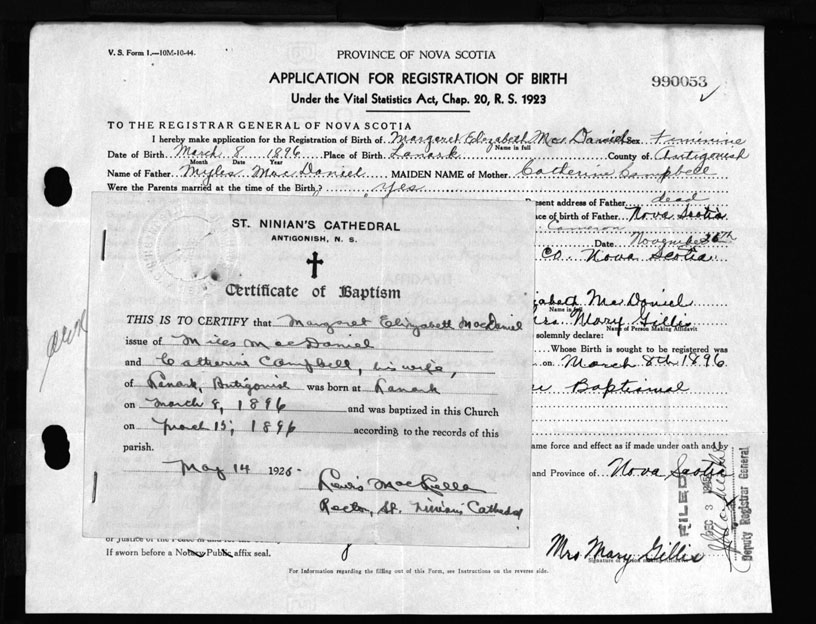 V. S. Form 1.—10M-10-44.
PROVINCE OF NOVA SCOTIA
APPLICATION FOR REGISTRATION OF BIRTH
990053
Under the Vital Statistics Act, Chap. 20, R. S. 1923
TO THE REGISTRAR GENERAL OF NOVA SCOTIA
I hereby make application for the Registration of Birth of Margaret Elizabeth Mac Daniel Sex Feminine
Name in full
Date of Birth March 8 1896 Place of Birth Lanark County of Antigonish
Month Date Year
Name of Father Myles Mac Daniel MAIDEN NAME of Mother Catherine Campbell
Were the Parents married at the time of the Birth? Yes
Present address of Father dead
ace of birth of Father Nova Scotia
Cameron
Date November 26th
Co. Nova Scotia
zabeth Mac Daniel
Name in full
rs. Mary Gillis
Name of Person Making Affidavit
solemnly declare:
Whose Birth is sought to be registered was
on March 8th 1896
Baptismal
ame force and effect as if made under oath and by
and Province of Nova Scotia
FILED
DEC 3
Deputy Registrar General
ST. NINIAN'S CATHEDRAL
ANTIGONISH, N. S.
Certificate of Baptism
THIS IS TO CERTIFY that Margaret Elizabeth MacDaniel
issue of Miles MacDaniel
and Catherine Campbell, his wife,
of Lanark, Antigonish was born at Lanark
on March 8, 1896 and was baptized in this Church
on March 15, 1896 according to the records of this
parish.
May 14 192
Rector, St. Ninian's Cathedral
or Justice of the Peace in and for the
If sworn before a Notary Public, affix seal.
Mrs Mary Gillis
Signature of Person Making Affidavit
For Information regarding the filling out of this Form, see Instructions on the reverse side.